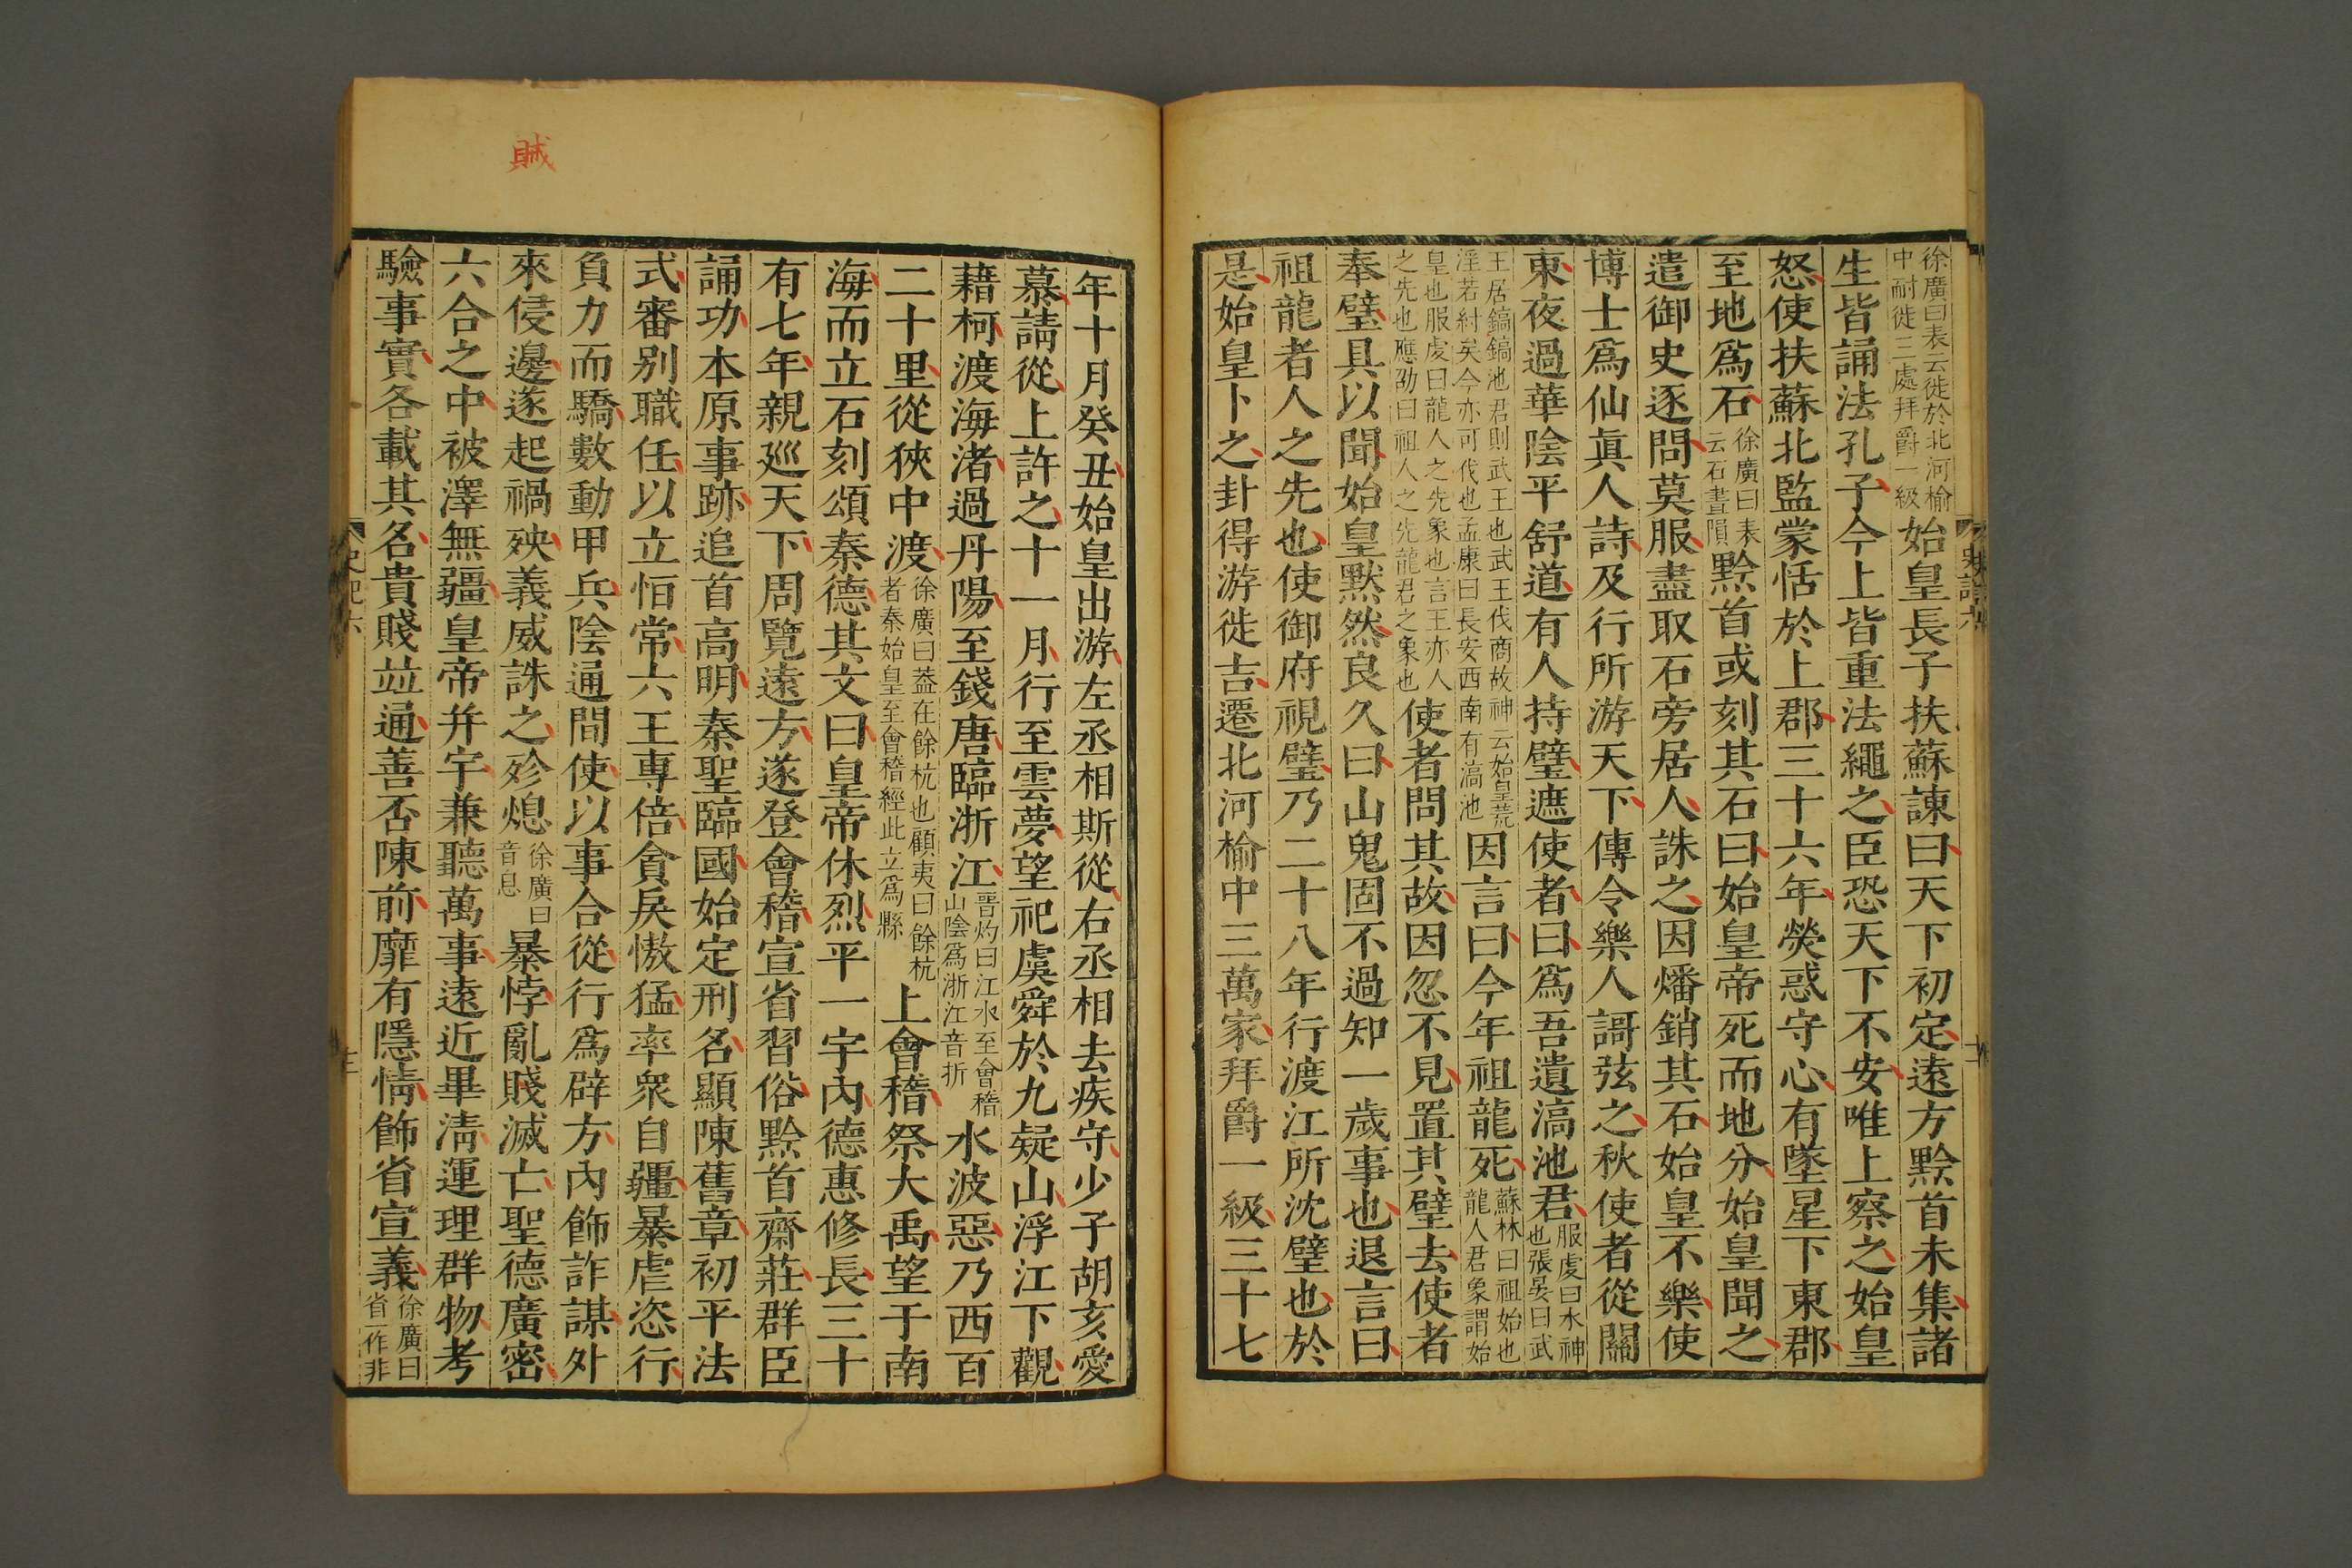 徐廣曰表云徙於北河榆
中耐徙三處拜爵一級
始皇長子扶蘇諫曰天下初定遠方黔首未集諸
生皆誦法孔子今上皆重法繩之臣恐天下不安唯上察之始皇
怒使扶蘇北監蒙恬於上郡三十六年熒惑守心有墜星下東郡
至地爲石
徐廣曰表
云石晝隕
黔首或刻其石曰始皇帝死而地分始皇聞之
遣御史逐問莫服盡取石旁居人誅之因燔銷其石始皇不樂使
博士爲仙眞人詩及行所游天下傳令樂人謌弦之秋使者從關
東夜過華陰平舒道有人持璧遮使者曰爲吾遺滈池君
服虔曰水神
也張晏曰武
王居鎬鎬池君則武王也武王伐商故神云始皇荒
淫若紂矣今亦可伐也孟康曰長安西南有滈池
因言曰今年祖龍死
蘇林曰祖始也
龍人君象謂始
皇也服虔曰龍人之先象也言王亦人
之先也應劭曰祖人之先龍君之象也
使者問其故因忽不見置其璧去使者
奉璧具以聞始皇黙然良久曰山鬼固不過知一歲事也退言曰
祖龍者人之先也使御府視璧乃二十八年行渡江所沈璧也於
是始皇卜之卦得游徙吉遷北河榆中三萬家拜爵一級三十七
年十月癸丑始皇出游左丞相斯從右丞相去疾守少子胡亥愛
慕請從上許之十一月行至雲夢望祀虞舜於九疑山浮江下觀
藉柯渡海渚過丹陽至錢唐臨浙江
晋灼曰江水至會稽
山陰爲浙江音折
水波惡乃西百
二十里從狹中渡
徐廣曰葢在餘杭也顧夷曰餘杭
者秦始皇至會稽經此立爲縣
上會稽祭大禹望于南
海而立石刻頌秦德其文曰皇帝休烈平一宇內德惠修長三十
有七年親廵天下周覽遠方遂登會稽宣省習俗黔首齋莊群臣
誦功本原事跡追首高明秦聖臨國始定刑名顯陳舊章初平法
式審别職任以立恒常六王專倍貪戾慠猛率衆自疆暴虐恣行
負力而驕數動甲兵陰通間使以事合從行爲辟方內飾詐謀外
來侵邊遂起禍殃義威誅之殄熄
徐廣曰
音息
暴悖亂賤滅亡聖德廣密
六合之中被澤無疆皇帝并宇兼聽萬事遠近畢淸運理群物考
驗事實各載其名貴賤竝通善否陳前靡有隱情飾省宣義
徐廣曰
省一作非
賊
史記六